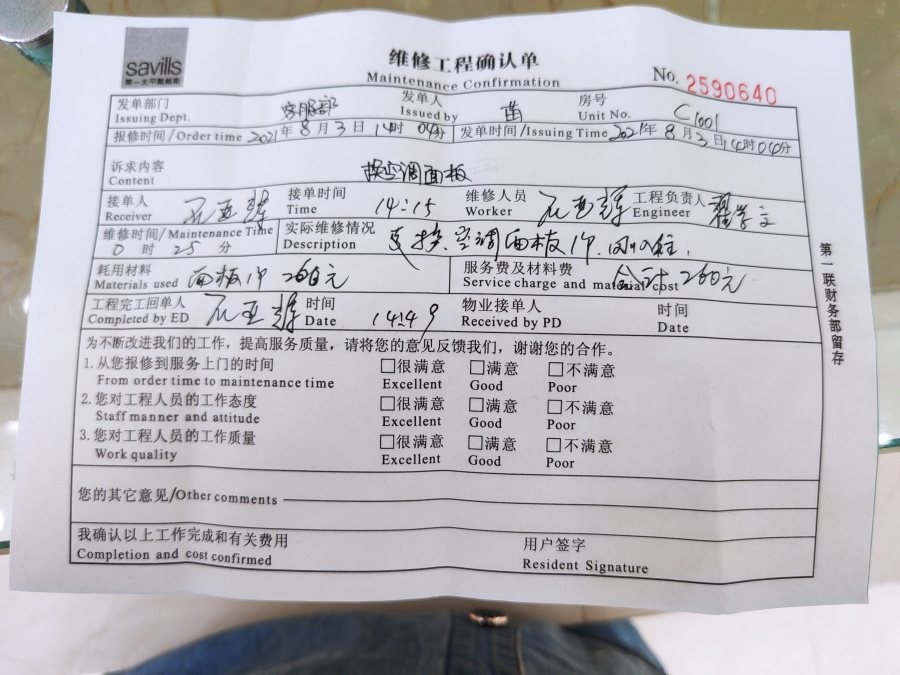 savills
第一太平戴维斯
维修工程确认单
Maintenance Confirmation
No. 2590640
发单部门 客服部 发单人 苗 房号 C1001
Issuing Dept. Issued by Unit No.
报修时间/Order time 2021年8月3日14时04分 发单时间/Issuing Time 2021年8月3日14时04分
诉求内容 换空调面板
Content
接单人 接单时间 14:15 维修人员 工程负责人
Receiver Time Worker Engineer
维修时间/Maintenance Time 实际维修情况 更换空调面板1个
0时25分 Description
耗用材料 面板1个 260元 服务费及材料费 合计260元
Materials used Service charge and material cost
工程完工回单人 时间 14:49 物业接单人 时间
Completed by ED Date Received by PD Date
为不断改进我们的工作，提高服务质量，请将您的意见反馈我们，谢谢您的合作。
1.从您报修到服务上门的时间 □很满意 □满意 □不满意
From order time to maintenance time Excellent Good Poor
2.您对工程人员的工作态度 □很满意 □满意 □不满意
Staff manner and attitude Excellent Good Poor
3.您对工程人员的工作质量 □很满意 □满意 □不满意
Work quality Excellent Good Poor
您的其它意见/Other comments
我确认以上工作完成和有关费用 用户签字
Completion and cost confirmed Resident Signature
第一联财务部留存